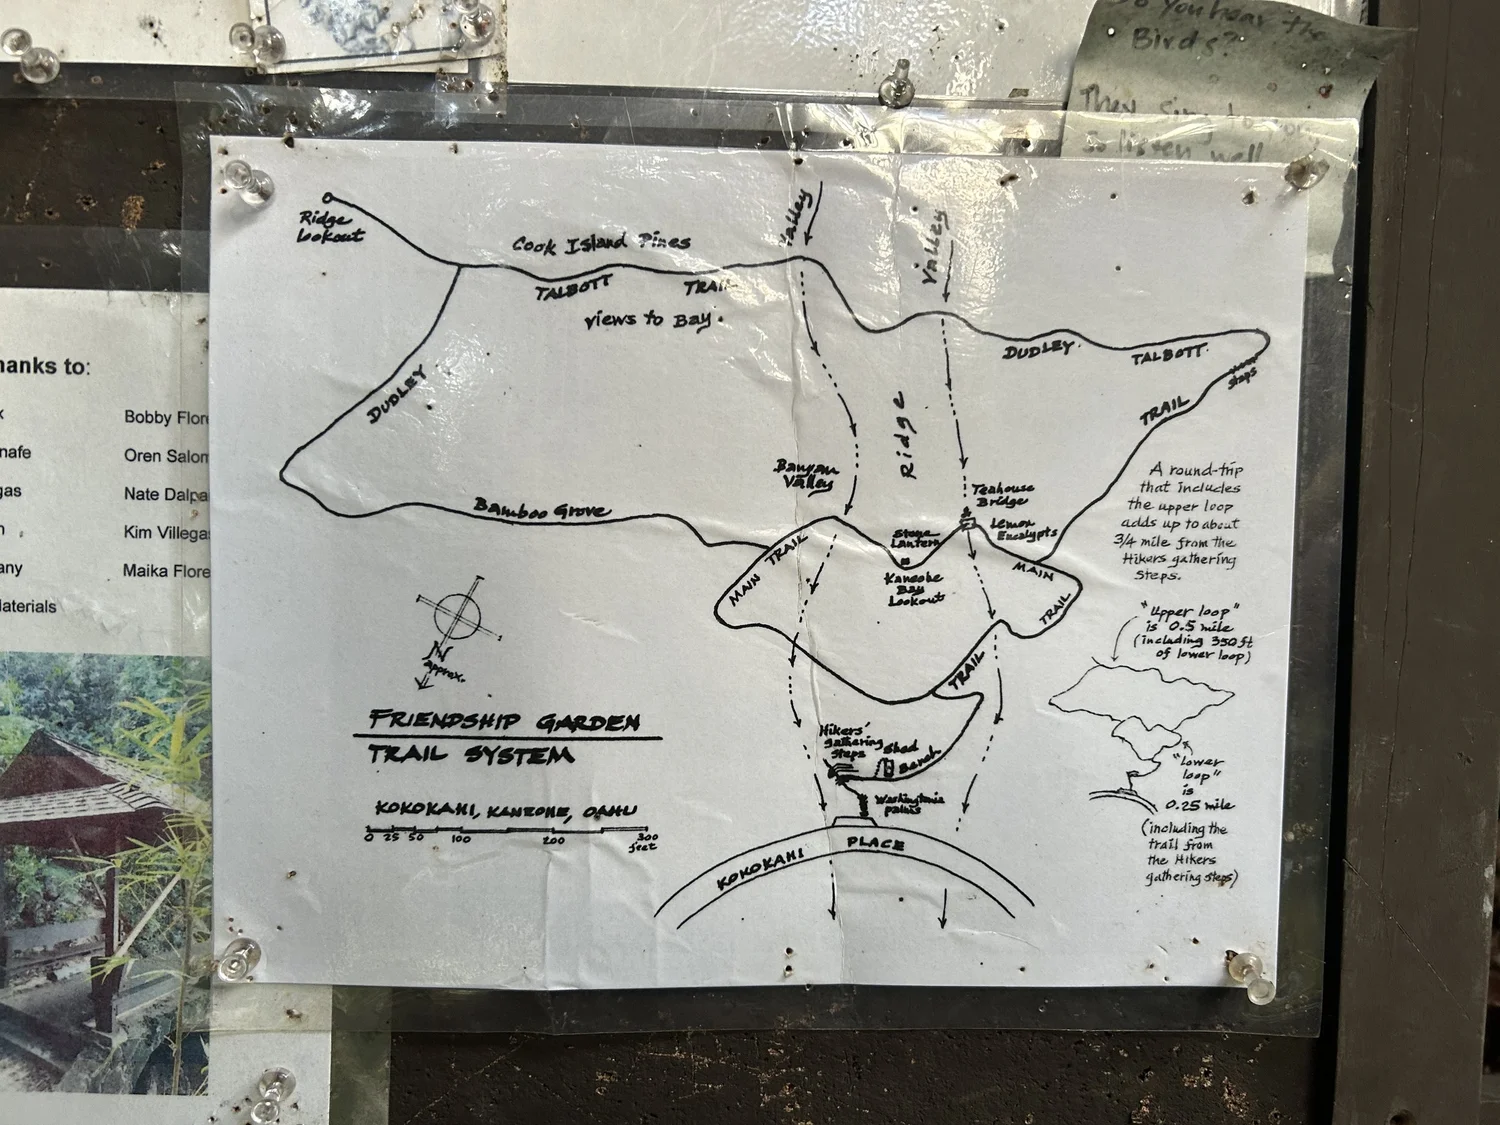 Do you hear the
Birds?
They sing to you
So listen well
hanks to:
Bobby Flore
nafe
Oren Salom
gas
Nate Dalpa
Kim Villega
any
Maika Flore
Materials
Ridge
Lookout
Cook Island Pines
TALBOTT TRAIL
views to Bay.
Valley
Valley
DUDLEY
DUDLEY TALBOTT
steps
TRAIL
Ridge
Banyan
Valley
Bamboo Grove
Teahouse
Bridge
Stone
Lantern
Lemon
Eucalypts
Kaneohe
Bay
Lookout
MAIN TRAIL
MAIN
TRAIL
TRAIL
A round-trip
that includes
the upper loop
adds up to about
3/4 mile from the
Hikers gathering
Steps.
"Upper loop"
is 0.5 mile
(including 350 ft
of lower loop)
"Lower
loop"
is
0.25 mile
(including the
trail from
the Hikers
gathering steps)
N
approx.
FRIENDSHIP GARDEN
TRAIL SYSTEM
KOKOKAHI, KANEOHE, OAHU
0 25 50 100 200 300
feet
Hikers'
gathering
steps
Shed
Bench
Washingtonia
palms
KOKOKAHI PLACE